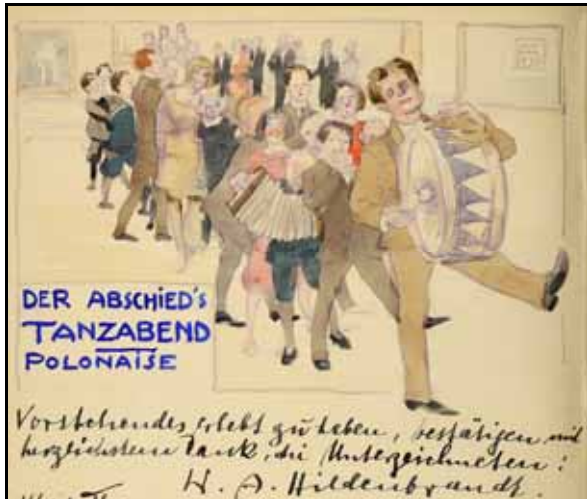 DER ABSCHIED'S
TANZABEND
POLONAISE
Vorstehendes erlebt zu haben, bestätigen mit
herzlichstem Dank, die Unterzeichneten:
W. A. Hildenbrandt